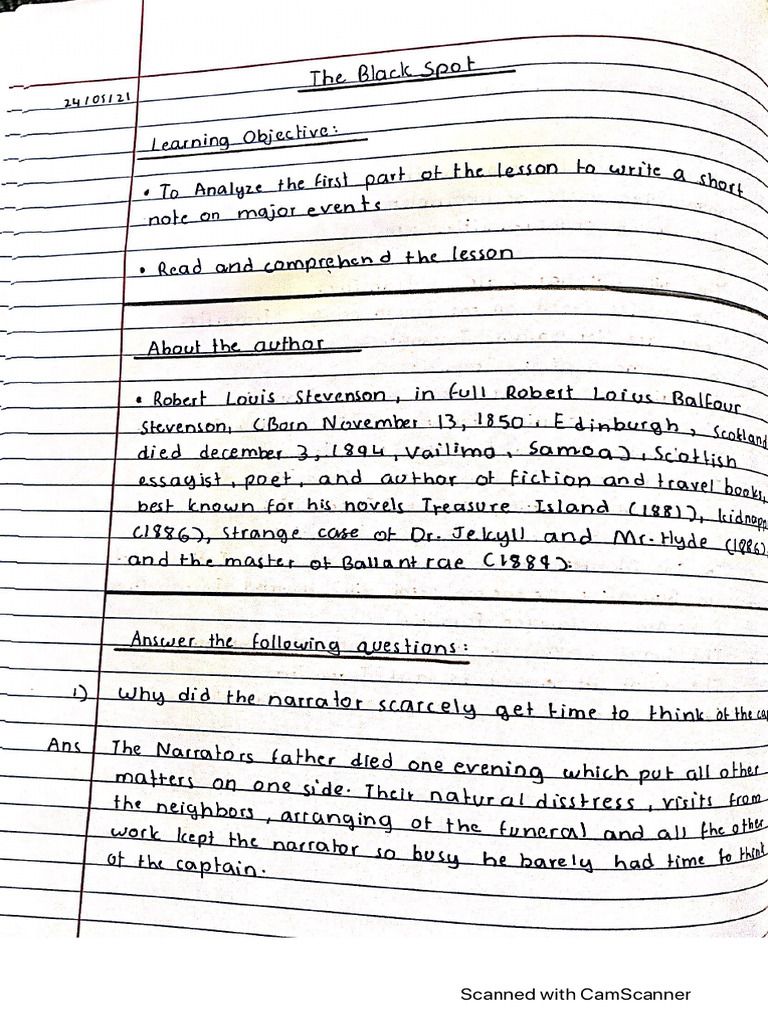 The Black Spot
24/05/21
Learning Objective:
• To Analyze the first part of the lesson to write a short
note on major events
• Read and comprehend the lesson
About the author
• Robert Louis Stevenson, in full Robert Loius Balfour
Stevenson, (Born November 13, 1850, Edinburgh, Scotland
died december 3, 1894, Vailima, Samoa), Scottish
essayist, poet, and author of fiction and travel books,
best known for his novels Treasure Island (1881), kidnapp
(1886), Strange case of Dr. Jekyll and Mr. Hyde (1886),
and the master of Ballantrae (1889).
Answer the following questions:
1) Why did the narrator scarcely get time to think of the cap
Ans The Narrators father died one evening which put all other
matters on one side. Their natural disstress, visits from
the neighbors, arranging of the funeral and all the other
work kept the narrator so busy he barely had time to think
of the captain.
Scanned with CamScanner